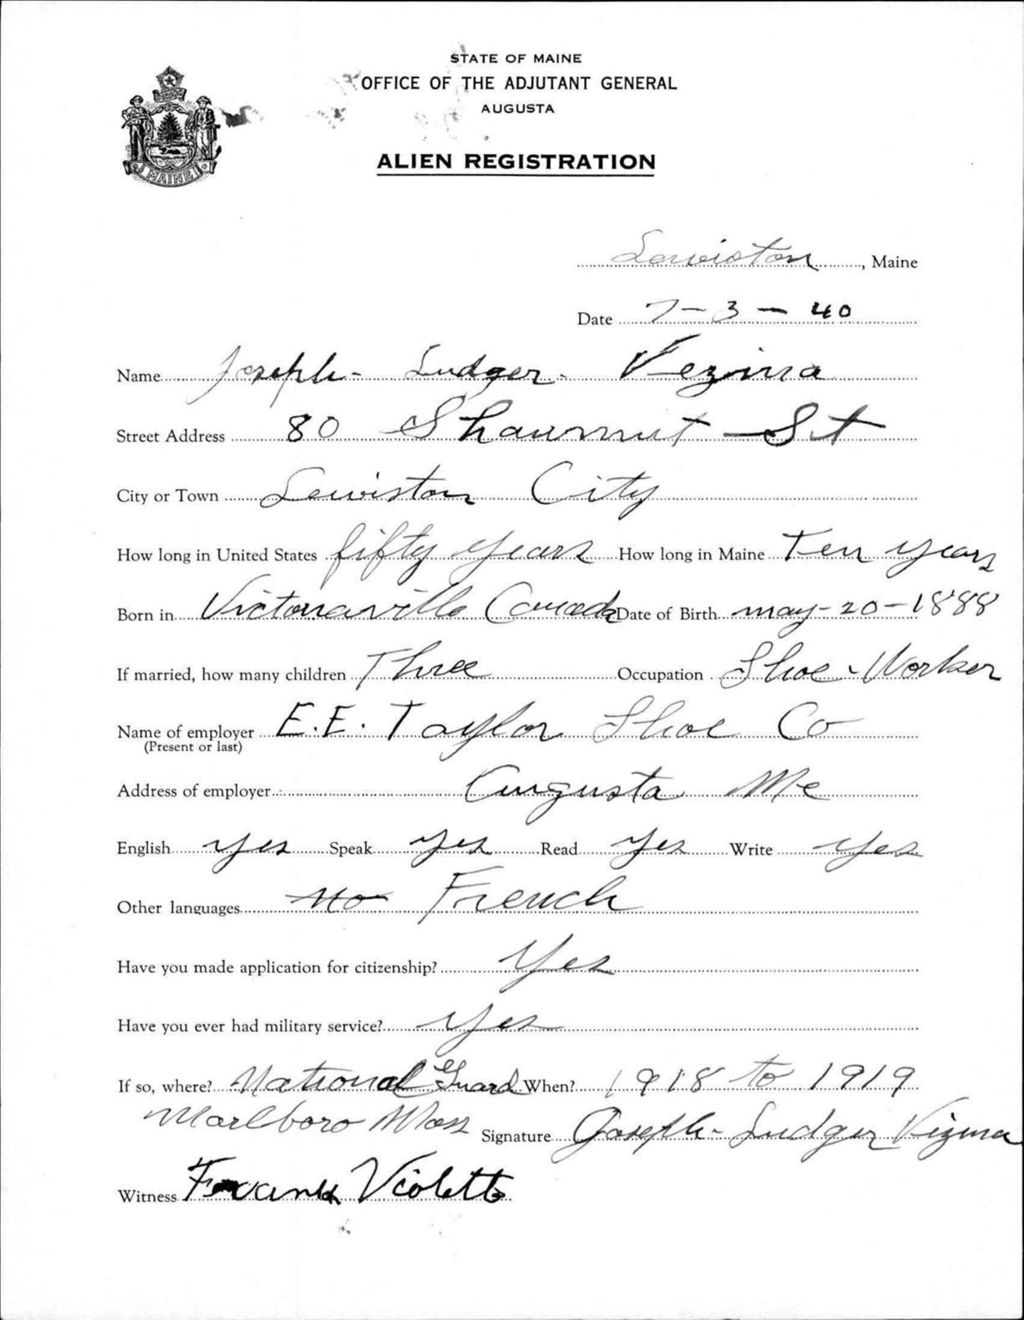 STATE OF MAINE
OFFICE OF THE ADJUTANT GENERAL
AUGUSTA
ALIEN REGISTRATION
MAINE
Lewiston, Maine
Date 7-3-40
Name Joseph- Ludger- Vezina
Street Address 80 Shawmut St
City or Town Lewiston City
How long in United States fifty years How long in Maine Ten years
Born in Victoriaville Canada Date of Birth may-20-1888
If married, how many children Three Occupation Shoe-Worker
Name of employer E.E. Taylor Shoe Co
(Present or last)
Address of employer Augusta Me
English yes Speak yes Read yes Write yes
Other languages no French
Have you made application for citizenship? Yes
Have you ever had military service? yes
If so, where? National Guard When? 1918 to 1919
Marlboro Mass Signature Joseph- Ludger Vezina
Witness Frank Violette